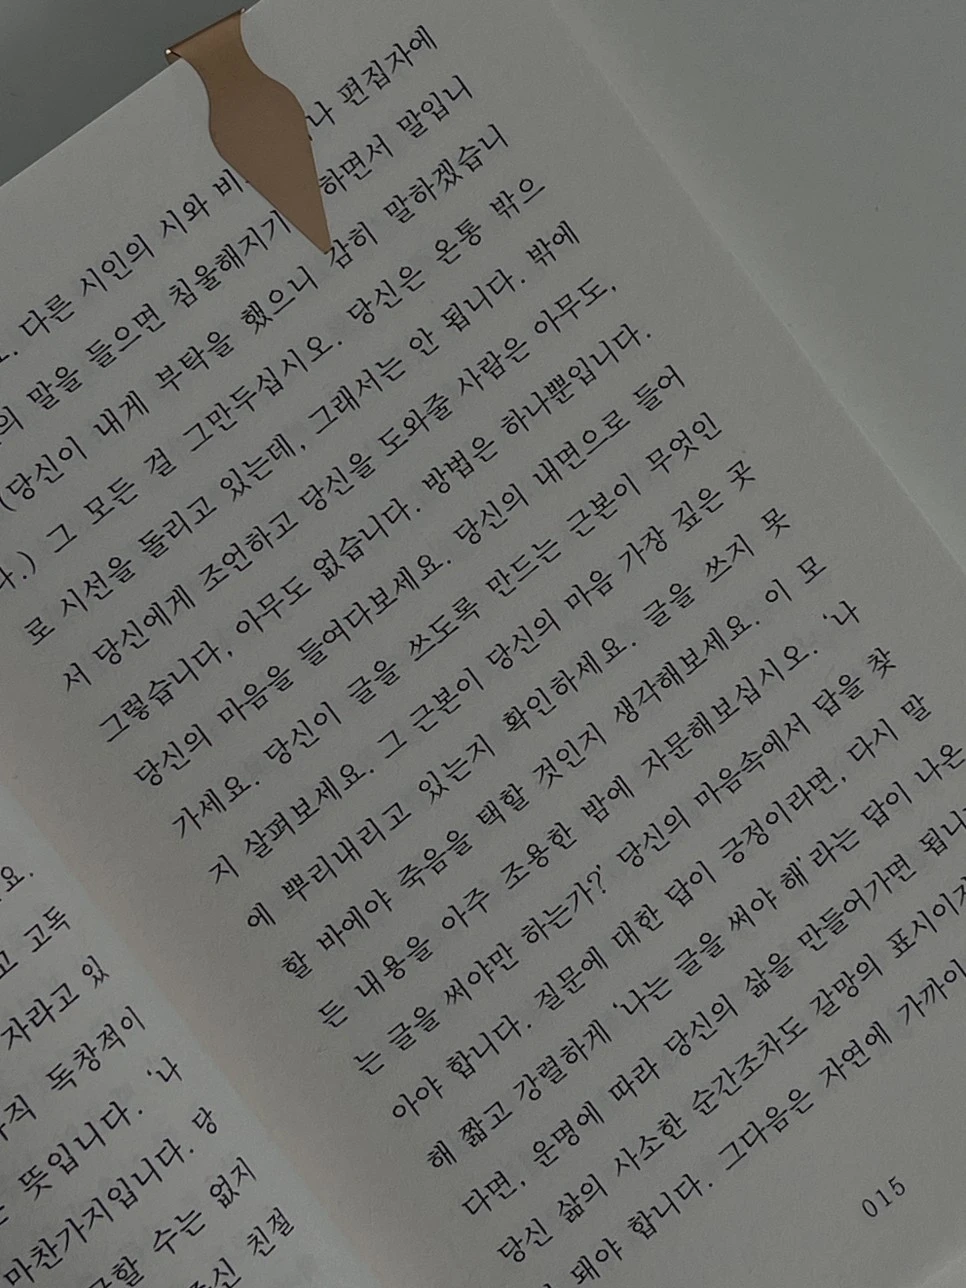 요.
고 고독
자라고 있
독창적이
뜻입니다. ‘나
마찬가지입니다. 당
수는 없지
친절
다른 시인의 시와 편집자에
말을 들으면 침울해지기 하면서 말입니
(당신이 내게 부탁을 했으니 감히 말하겠습니
다.) 그 모든 걸 그만두십시오. 당신은 온통 밖으
로 시선을 돌리고 있는데, 그래서는 안 됩니다. 밖에
서 당신에게 조언하고 당신을 도와줄 사람은 아무도,
그렇습니다, 아무도 없습니다. 방법은 하나뿐입니다.
당신의 마음을 들여다보세요. 당신의 내면으로 들어
가세요. 당신이 글을 쓰도록 만드는 근본이 무엇인
지 살펴보세요. 그 근본이 당신의 마음 가장 깊은 곳
에 뿌리내리고 있는지 확인하세요. 글을 쓰지 못
할 바에야 죽음을 택할 것인지 생각해보세요. 이 모
든 내용을 아주 조용한 밤에 자문해보십시오. ‘나
는 글을 써야만 하는가?’ 당신의 마음속에서 답을 찾
아야 합니다. 질문에 대한 답이 긍정이라면, 다시 말
해 짧고 강렬하게 ‘나는 글을 써야 해’라는 답이 나온
다면, 운명에 따라 당신의 삶을 만들어가면 됩니
당신 삶의 사소한 순간조차도 갈망의 표시이자
돼야 합니다. 그다음은 자연에 가까이
015